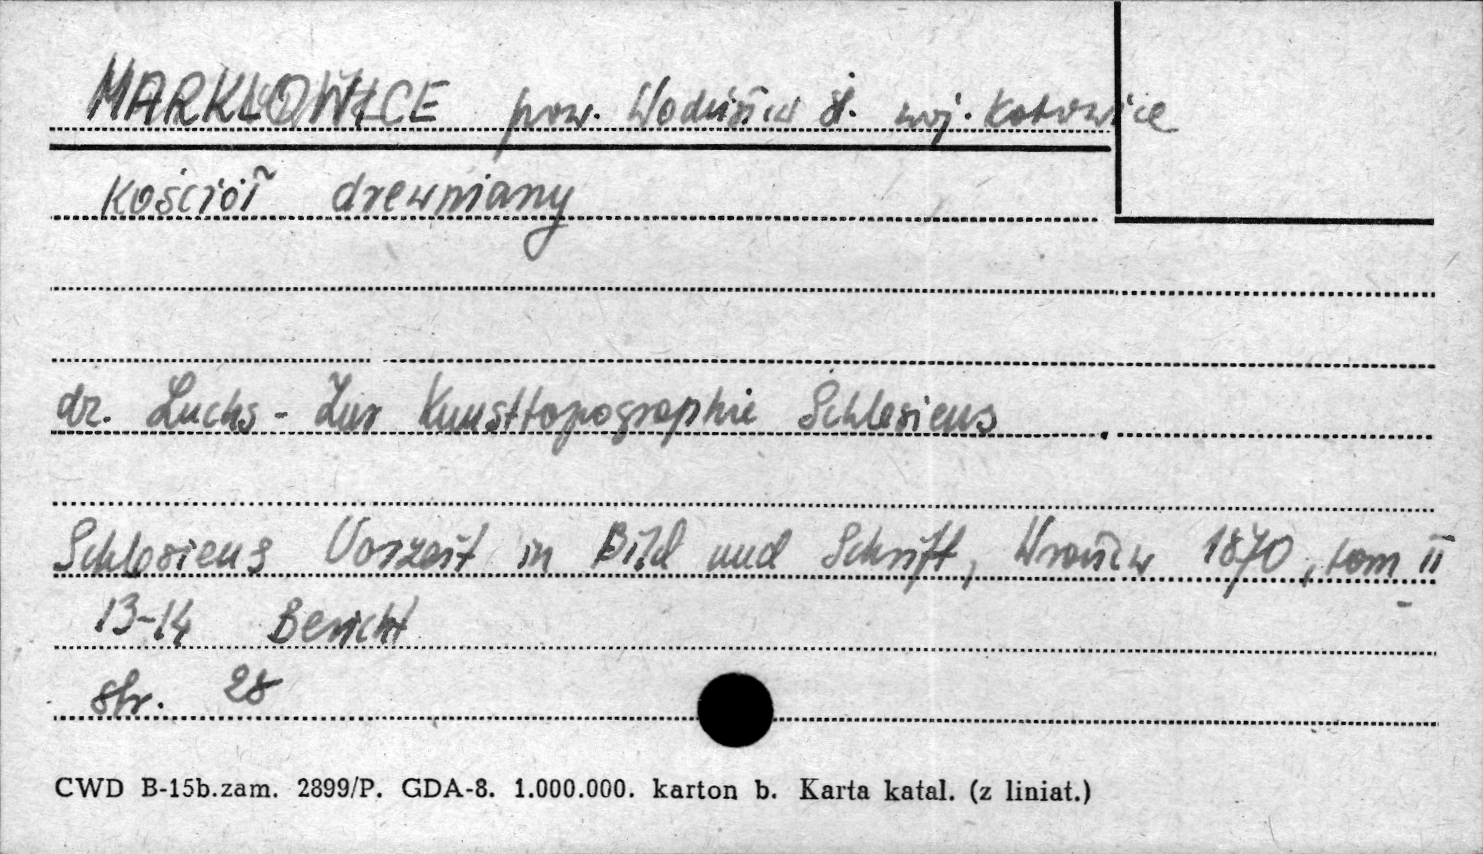 MARKŁOWICE pow. Wodzisław śl. woj. Katowice
Kościół drewniany
dr. Luchs - Zur Kunsttopographie Schlesiens
Schlesiens Vorzeit in Bild und Schrift, Wrocław 1870, tom II
13-14 Bericht
str. 28
CWD B-15b.zam. 2899/P. GDA-8. 1.000.000. karton b. Karta katal. (z liniat.)